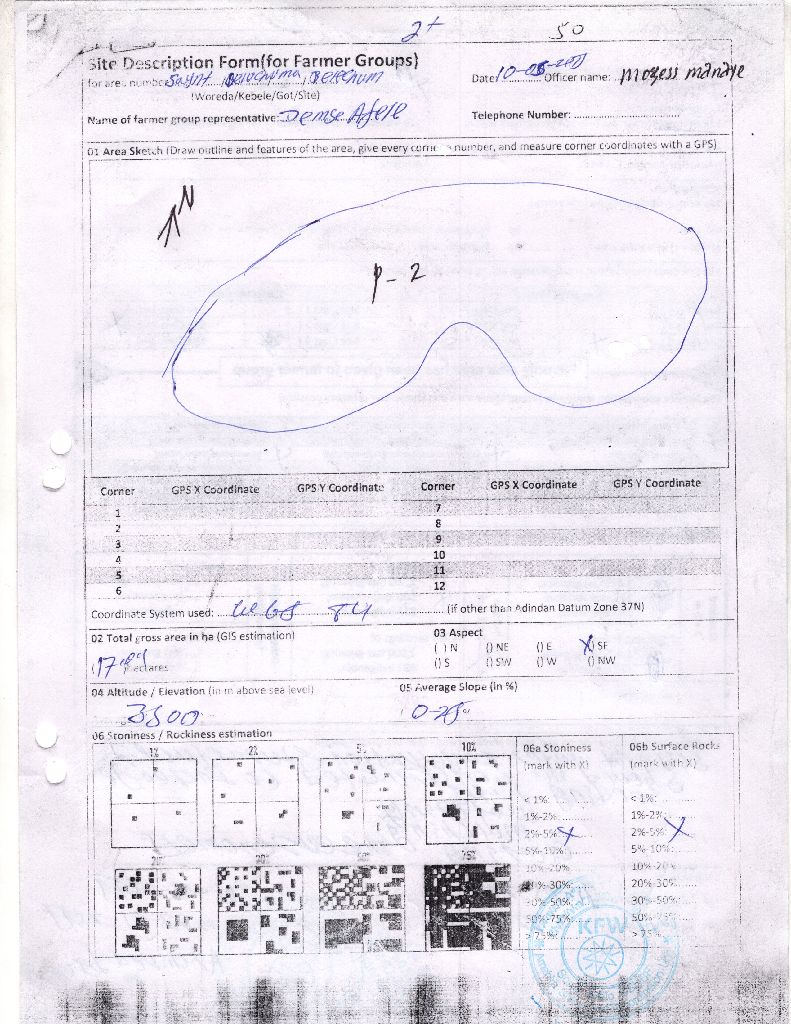 2+ 50
Site Description Form(for Farmer Groups)
for area number: Saynt / / Date: 10-08- Officer name: Mozess mandye
(Woreda/Kebele/Got/Site)
Name of farmer group representative: Demse Afere Telephone Number:
01 Area Sketch (Draw outline and features of the area, give every corner a number, and measure corner coordinates with a GPS)
N
P-2
Corner GPS X Coordinate GPS Y Coordinate Corner GPS X Coordinate GPS Y Coordinate
1 7
2 8
3 9
4 10
5 11
6 12
Coordinate System used: WGS 84 (if other than Adindan Datum Zone 37N)
02 Total gross area in ha (GIS estimation) 03 Aspect
( ) N () NE () E X() SE
17 Hectares () S () SW () W () NW
04 Altitude / Elevation (in m above sea level) 05 Average Slope (in %)
3500 0-25 %
06 Stoniness / Rockiness estimation
1% 2% 5% 10% 06a Stoniness 06b Surface Rocks
(mark with X) (mark with X)
< 1%: < 1%:
1%-2%: 1%-2%:
2%-5%: X 2%-5%: X
5%-10%: 5%-10%:
20% 30% 50% 75% 10%-20% 10%-20%
20%-30%: 20%-30%:
30%-50%: 30%-50%:
50%-75%: 50%-75%:
> 75%: > 75%:
KFW